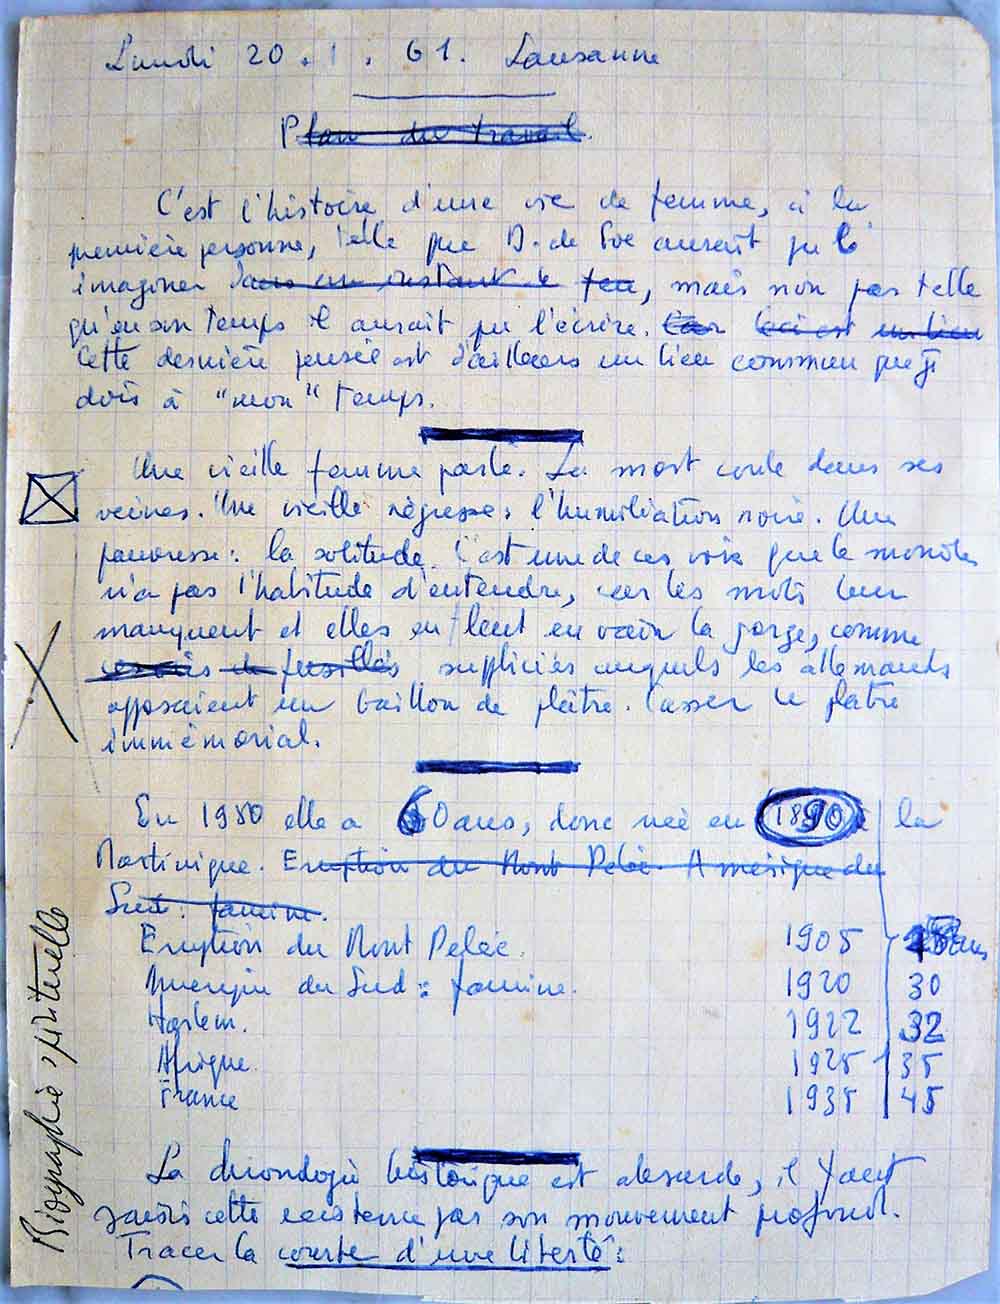 Lundi 20.1.61. Lausanne
Plan du travail.
C'est l'histoire d'une vie de femme, à la
première personne, telle que D. de Foe aurait pu l'
imaginer dans un instant de feu, mais non pas telle
qu'en son temps il aurait pu l'écrire. Ceci est un lieu
Cette dernière pensée est d'ailleurs un lieu commun que je
dois à "mon" temps.
Une vieille femme parle. La mort coule dans ses
veines. Une vieille négresse : l'humiliation noire. Une
pauvresse : la solitude. C'est une de ces voix que le monde
n'a pas l'habitude d'entendre, car les mots leur
manquent et elles enflent en vain la gorge, comme
de fusillés suppliciés auxquels les allemands
apposaient un baillon de plâtre. Casser le plâtre
immémorial.
En 1950 elle a 60 ans, donc née en 1890 à la
Martinique. Eruption du Mont Pelée. Amérique du
Sud : famine.
Eruption du Mont Pelée. 1905 15 ans
Amérique du Sud : famine. 1920 30
Harlem. 1922 32
Afrique. 1925 35
France 1935 45
La chronologie historique est absurde, il faut
saisir cette existence par son mouvement profond.
Tracer la courbe d'une liberté :
Biographie spirituelle